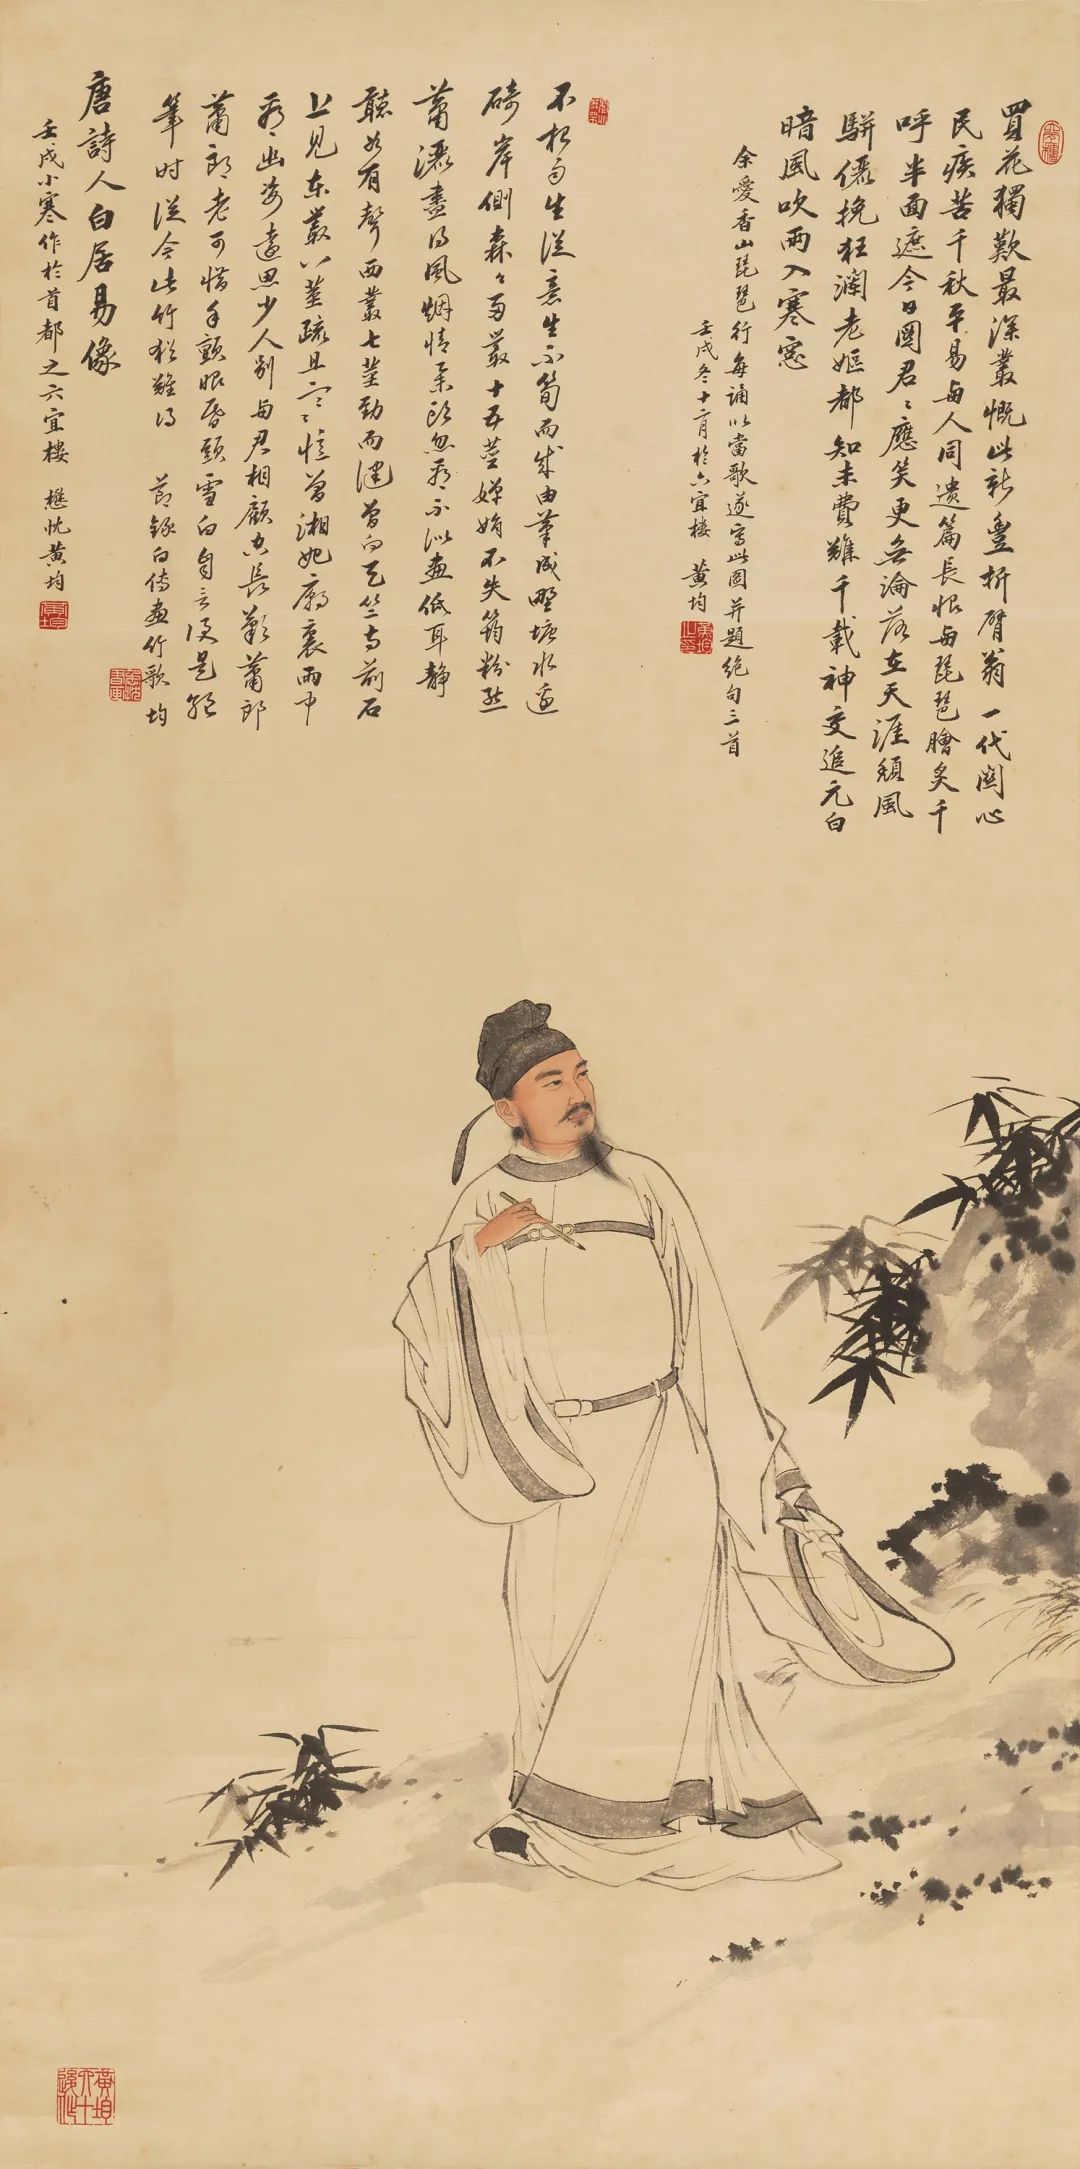 買花獨歎最深叢慨此新豐折臂翁一代関心
民疾苦千秋平易與人同遺篇長恨與琵琶膾炙千
呼半面遮今日圖君々應笑更無淪落在天涯頹風
駢儷挽狂瀾老嫗都知未費難千載神交追元白
暗風吹雨入寒窓
余愛香山琵琶行每誦以當歌遂寫此圖并題絕句三首
壬戌冬十二月於六宜樓 黄均
不根而生從意生不筍而成由筆成野塘水邊
碕岸側森々两叢十五莖嬋娟不失筠粉態
蕭灑盡得風烟情舉頭忽看不似畫低耳靜
聽如有聲西叢七莖勁而健曾向天竺寺前石
上見東叢八莖疏且寒憶曾湘妃廟裏雨中
看幽姿遠思少人別與君相顧空長歎蕭郎
蕭郎老可惜手顫眼昏頭雪白自言便是絕
筆时從今此竹猶難得 節錄白傅畫竹歌 均
唐詩人白居易像
壬戌小寒作於首都之六宜樓 懋忱黄均
黃均六十後作